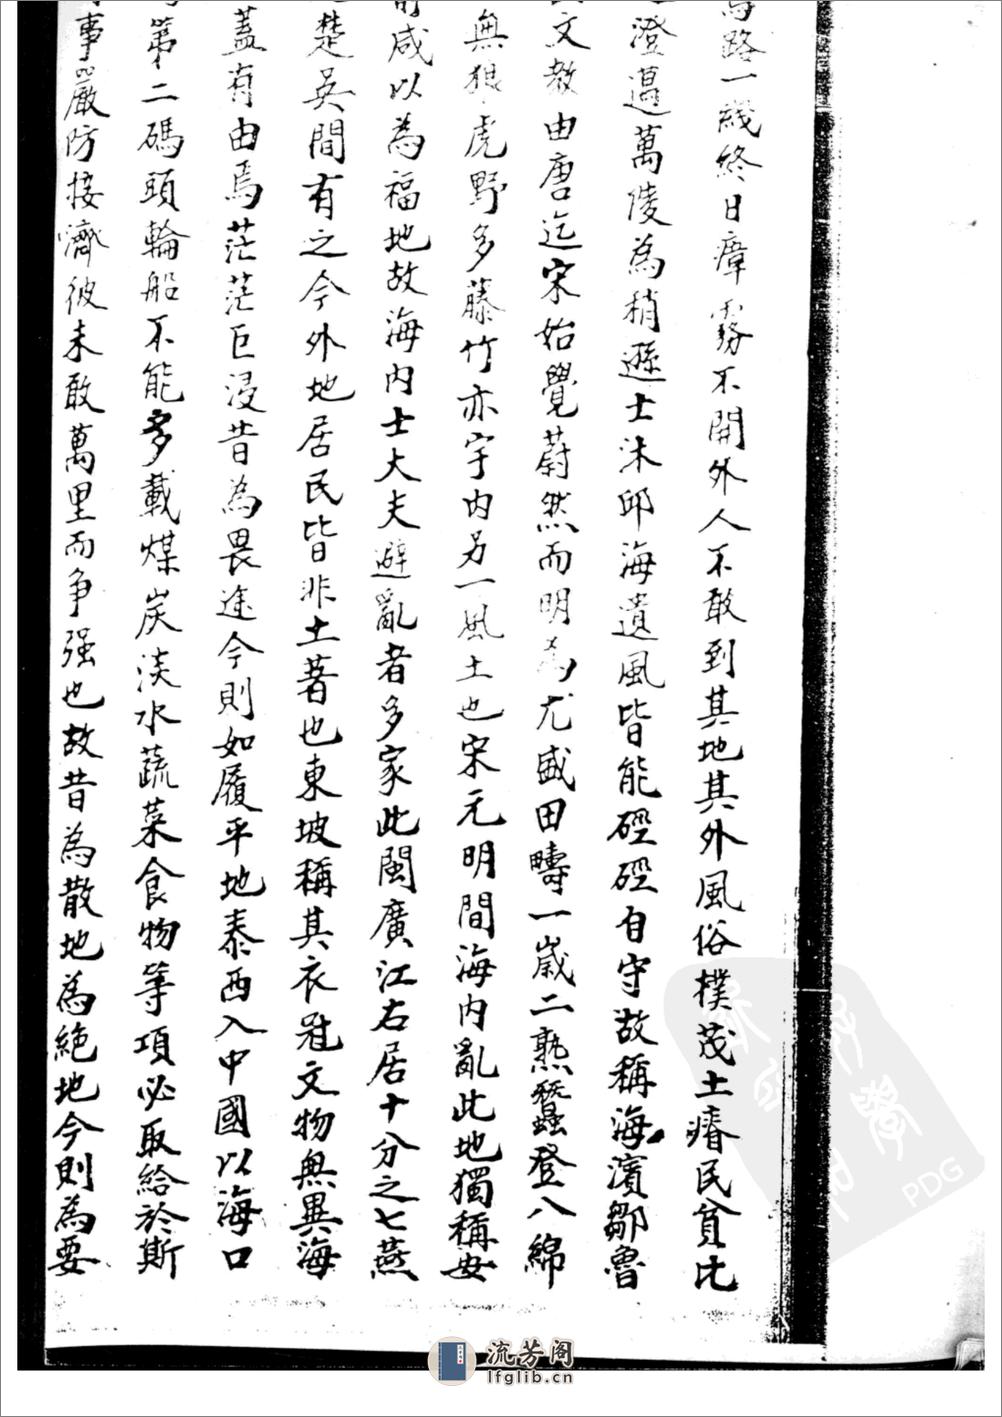 路一綫終日瘴霧不開外人不敢到其地其外風俗樸茂土瘠民貧比
澄邁萬陵為稍遜士沐邱海遺風皆能硜硜自守故稱海濱鄒魯
文教由唐迄宋始覺蔚然而明為尤盛田疇一歲二熟蠶登八綿
無狼虎野多藤竹亦宇内另一風土也宋元明間海内亂此地獨稱安
咸以為福地故海内士大夫避亂者多家此閩廣江右居十分之七燕
楚吳間有之今外地居民皆非土著也東坡稱其衣冠文物無異海
蓋有由焉茫茫巨浸昔為畏途今則如履平地泰西入中國以海口
第二碼頭輪船不能多載煤炭淡水蔬菜食物等項必取給於斯
事嚴防接濟彼未敢萬里而争强也故昔為散地為絶地今則為要
PDG
流芳阁
lfglib.cn